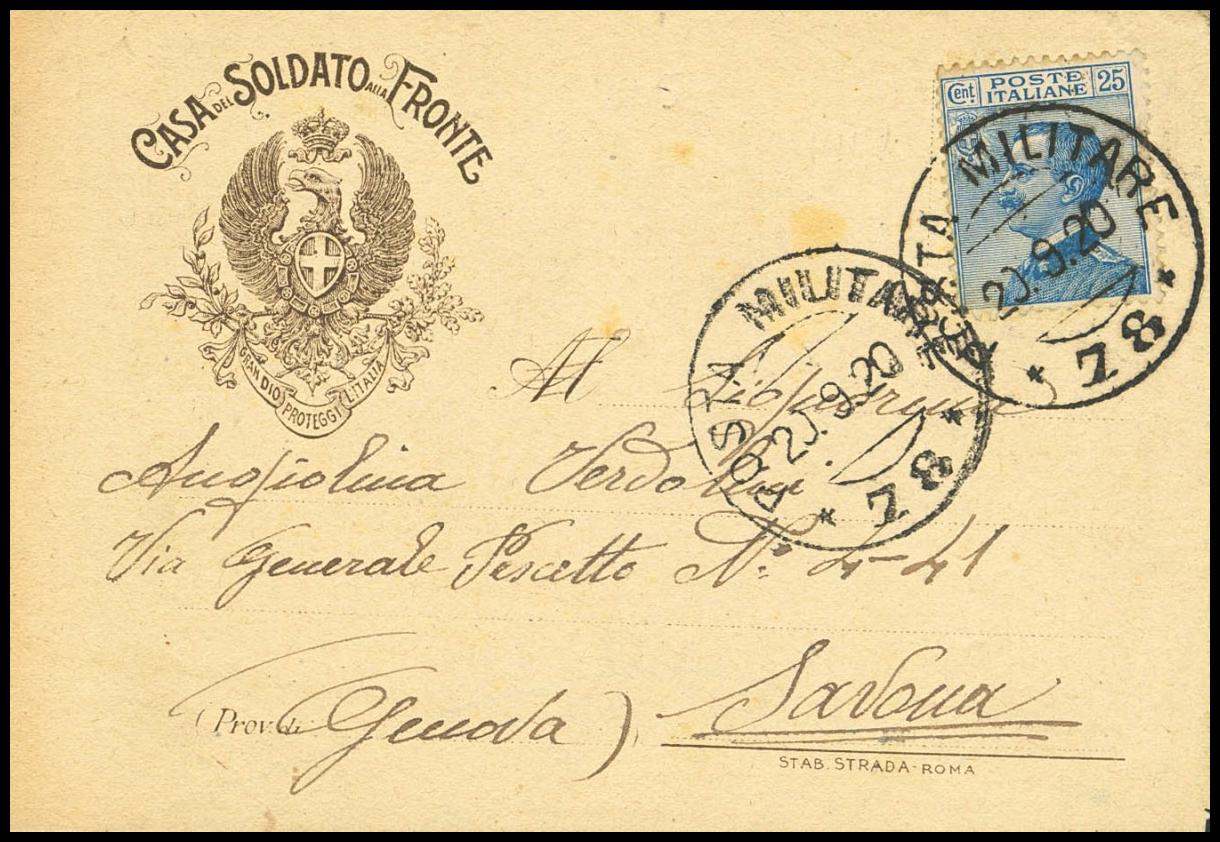 CASA DEL SOLDATO ALLA FRONTE
Cent. POSTE ITALIANE 25
POSTA MILITARE
20.9.20
* 87 *
GRAN DIO PROTEGGI L'ITALIA
POSTA MILITARE
20.9.20
* 87 *
Al
Angiolina Verdolini
Via Generale Pescetto N.° 4-41
(Prov. di Genova) Savona
STAB. STRADA-ROMA